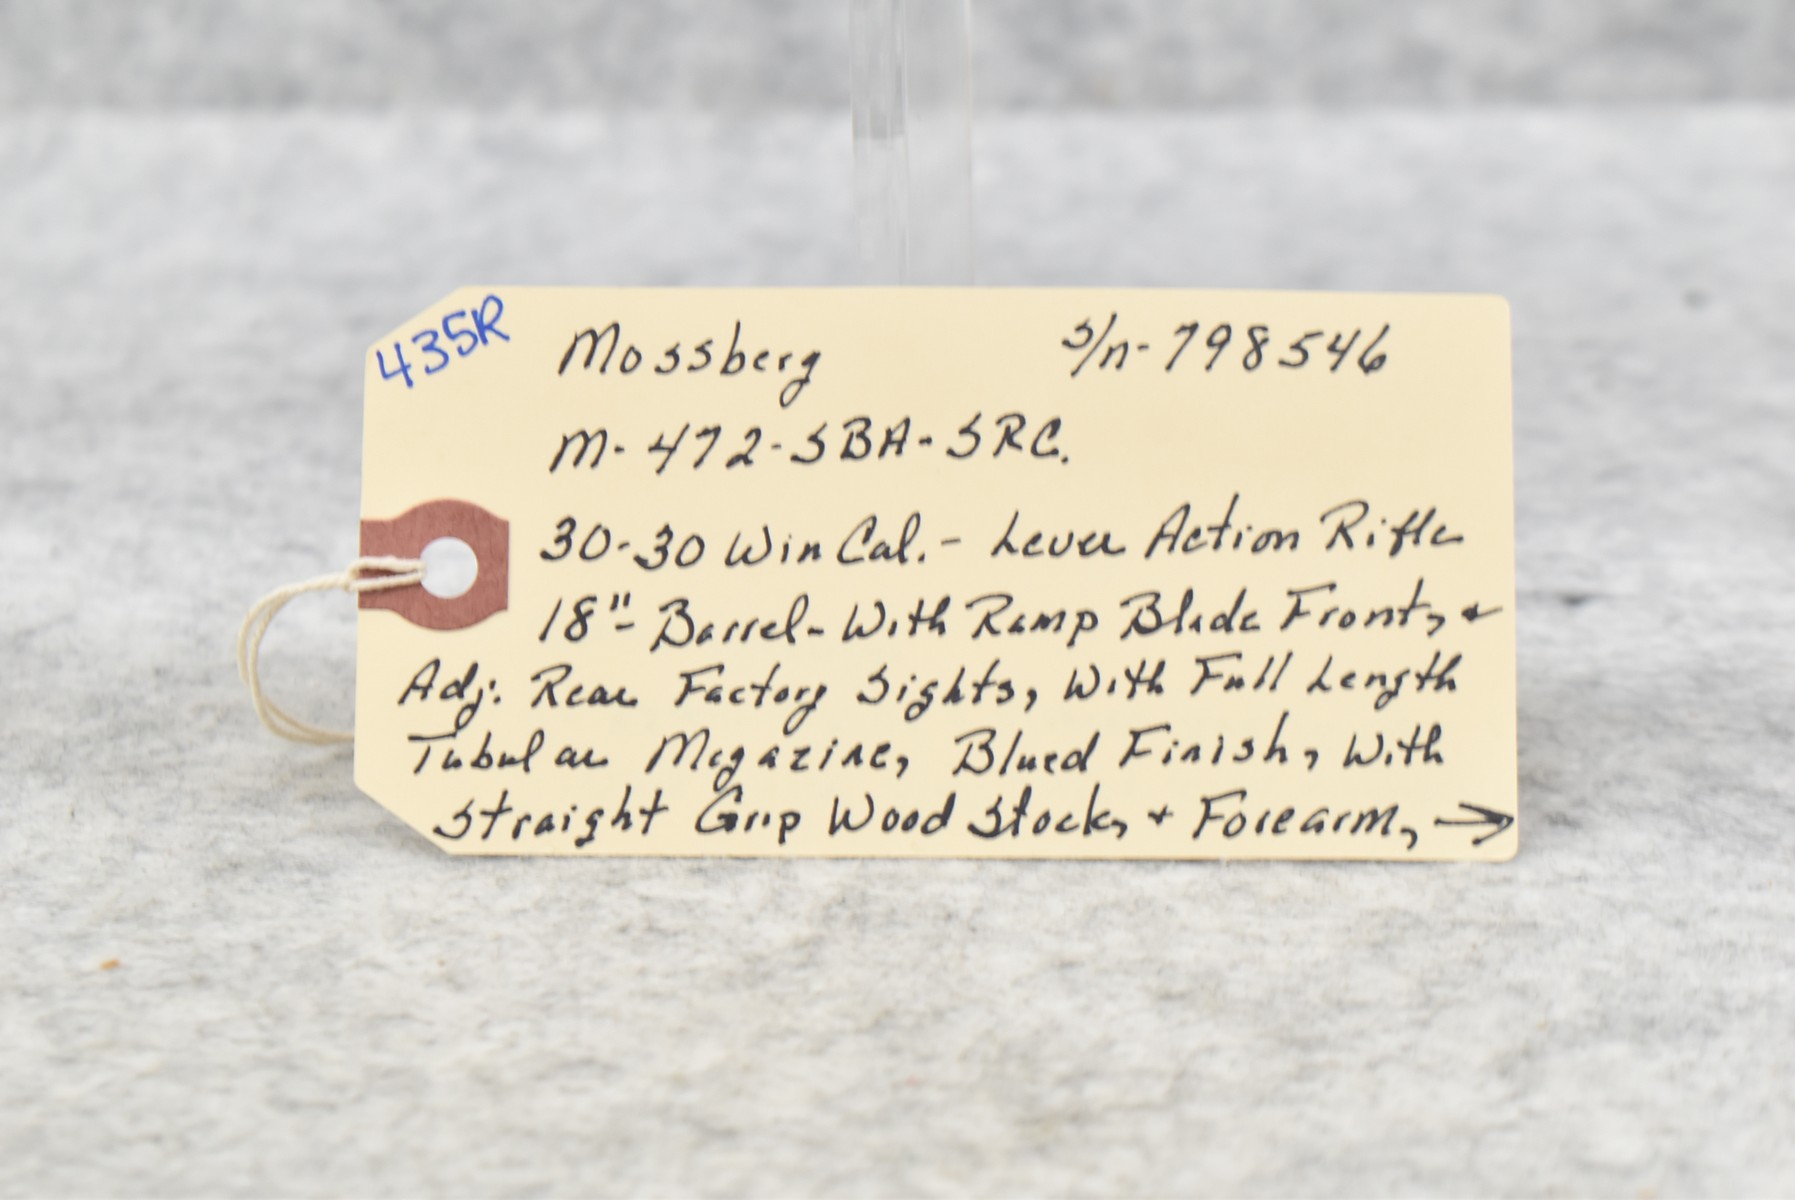 435R
Mossberg S/n-798546
M-472-SBA-SRC.
30-30 Win Cal. - Lever Action Rifle
18"- Barrel- With Ramp Blade Front, +
Adj. Rear Factory Sights, With Full Length
Tubular Magazine, Blued Finish, With
Straight Grip Wood Stock, + Forearm, →